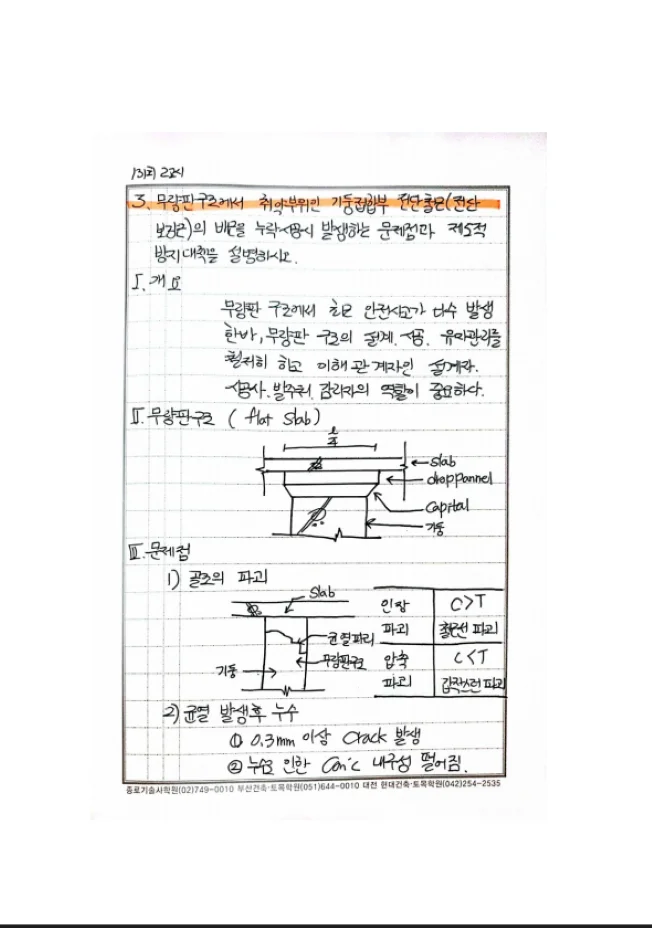 131회 2교시
3. 무량판구조에서 취약부위인 기둥접합부 전단철근(전단
보강근)의 배근을 누락시공시 발생하는 문제점과 제도적
방지대책을 설명하시오.
I. 개요
무량판 구조에서 최근 안전사고가 다수 발생
한바, 무량판 구조의 설계. 시공. 유지관리를
철저히 하고 이해관계자인 설계자.
시공사. 발주처. 감리자의 역할이 중요하다.
II. 무량판구조 ( flat slab)
ℓ/4
slab
drop pannel
Capital
기둥
III. 문제점
1) 골조의 파괴
slab
균열파괴
무량판구조
기둥
인장 파괴 C>T 철근선 파괴
압축 파괴 C<T 갑작스런 파괴
2) 균열 발생후 누수
① 0.3mm 이상 Crack 발생
② 누수로 인한 Con'c 내구성 떨어짐.
종로기술사학원(02)749-0010 부산건축·토목학원(051)644-0010 대전 현대건축·토목학원(042)254-2535